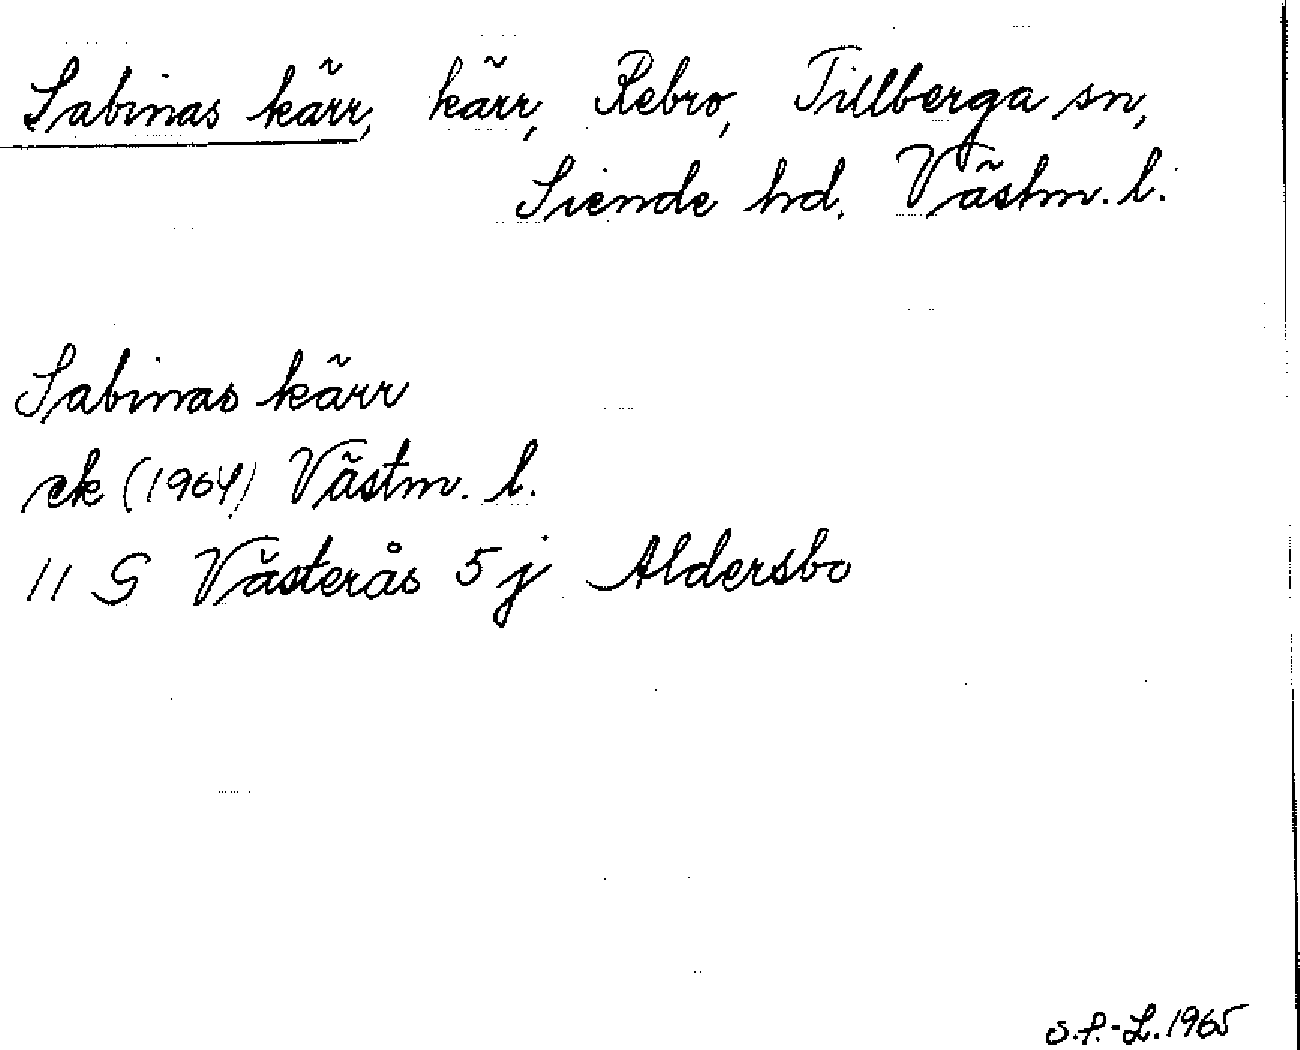 Sabinas kärr, kärr, Rebro, Tillberga sn,
Siende hd. Västm. l.
Sabinas kärr
ek (1964) Västm. l.
11 G Västerås 5 j Aldersbo
S.f.-L. 1965